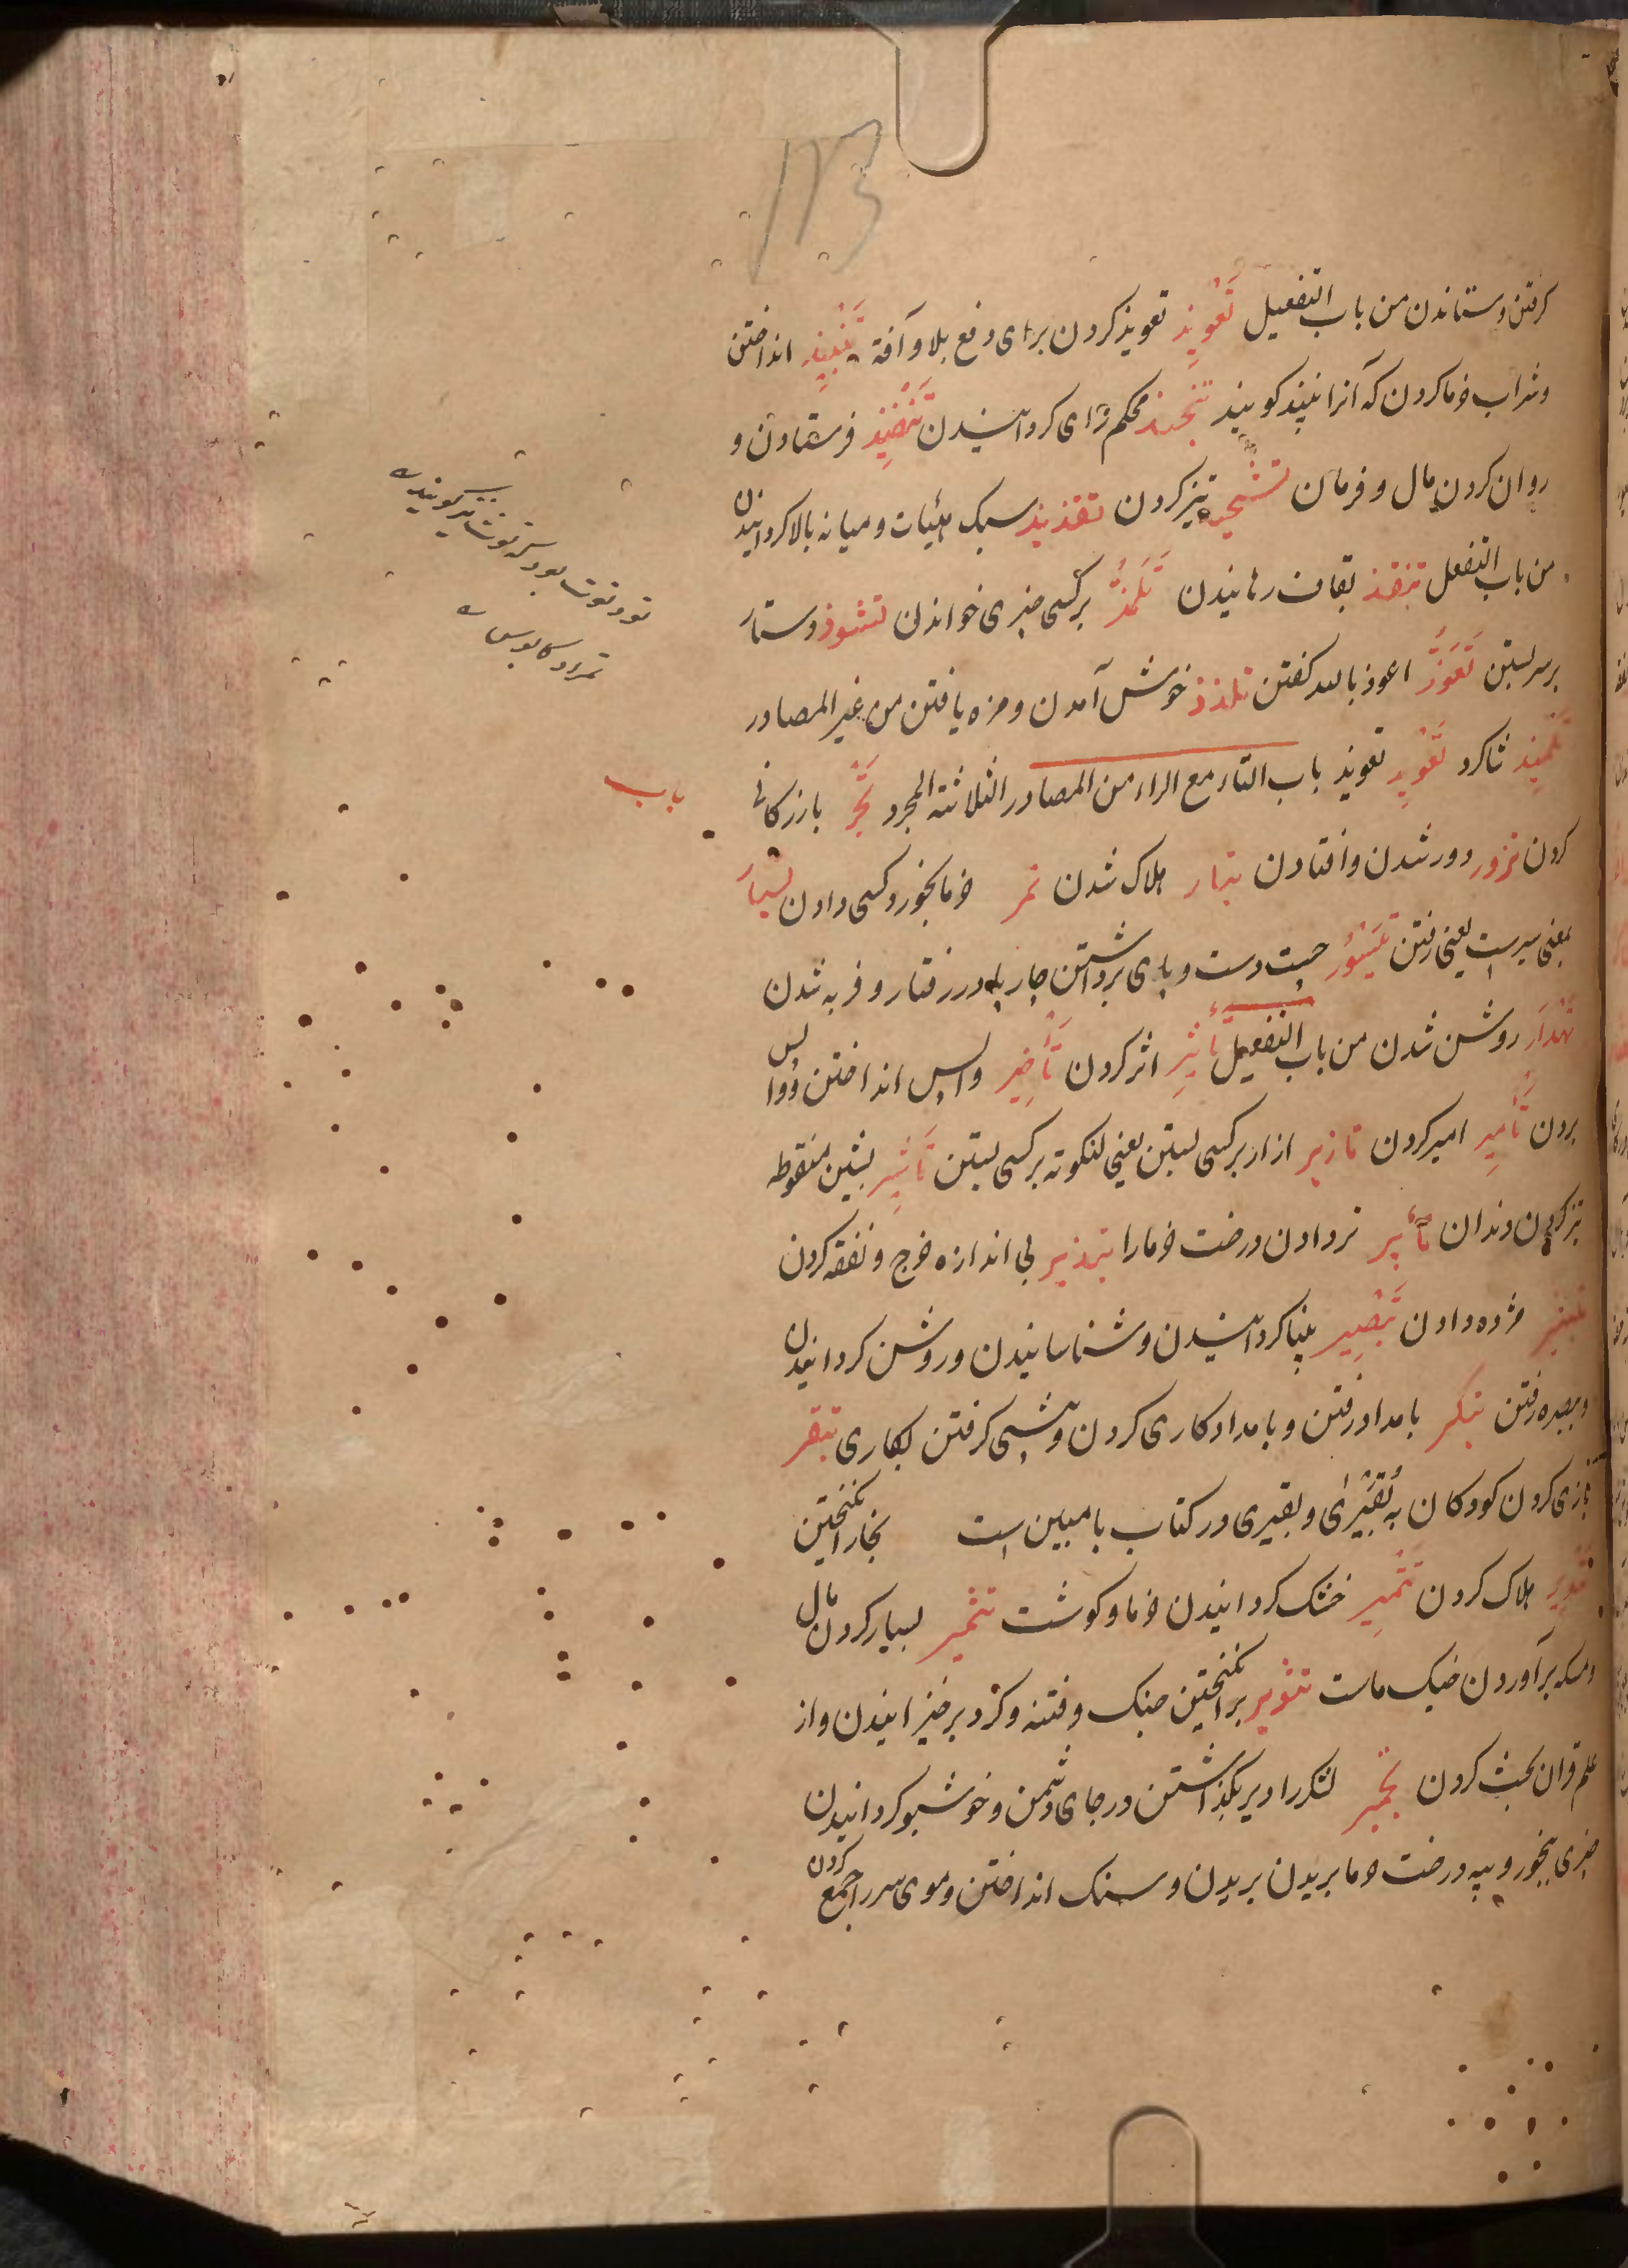 ۱۲۳
کرفتن وستاندن من باب التفعیل تَعْوِیذِ تعویذ کردن برای دفع بلا و آفة تَنْبِیذِ انداختن
وشراب خرما کردن که آنرا نبیذ کویند تنجیذ محکم رای کردانیدن تَنْفِیذِ فرستادن و
روان کردن مال و فرمان تشحیذ تیز کردن تقذیذ سبک هیٔات و میانه بالا کردانیدن
من باب التفعل تنقذ رهانیدن تَلَمُّذْ برکسی چیزی خواندن تشوذ دستار
برسر بستن تَعَوُّذْ اعوذ بالله کفتن تلذذ خوش آمدن و مزه یافتن من غیر المصادر
تَلْمِیذِ شاکرد تَعْوِیذِ تعویذ باب التاء مع الراء من المصادر الثلاثة المجرد تَجْرْ بازرکانی
کردن ترور دور شدن و افتادن تبار هلاک شدن تمر خرما بخورد کسی دادن تسیار
بمعنی سیرست یعنی رفتن تَیسُّور چست دست و پای برداشتن چارپا در رفتار و فربه شدن
تهدار روشن شدن من باب التفعیل تأثیر اثر کردن تأخیر واپس انداختن و واپس
بردن تأمیر امیر کردن تازیر ازار برکسی بستن یعنی لنکوته برکسی بستن تأشیر بشین منقوطه
تیز کردن دندان تأبیر نر دادن درخت خرما را تبذیر بی اندازه خرج و نفقه کردن
تبشیر مژده دادن تَبْصِیر بینا کردانیدن و شناسانیدن و روشن کردانیدن
و ببصره رفتن تبکیر بامداد رفتن و بامداد کاری کردن و پیشی کرفتن بکاری تبقر
بازی کردن کودکان به بُقَّیْرٰی و بقیری در کتاب با مبین است بخار انکیختن
تتبیر هلاک کردن تَتْمِیرِ خشک کردانیدن خرما و کوشت تثمیر بسیار کردن مال
ومسکه برآوردن خیک ماست تثویر برانکیختن جنک و فتنه و کرد برخیزانیدن و از
علم قران بحث کردن تجمیر لشکر را دیر بکذاشتن در جای دشمن و خوشبو کردانیدن
چیزی ببخور و پیه درخت خرما بریدن بریدن و سنک انداختن و موی سر را جمع کردن
باب